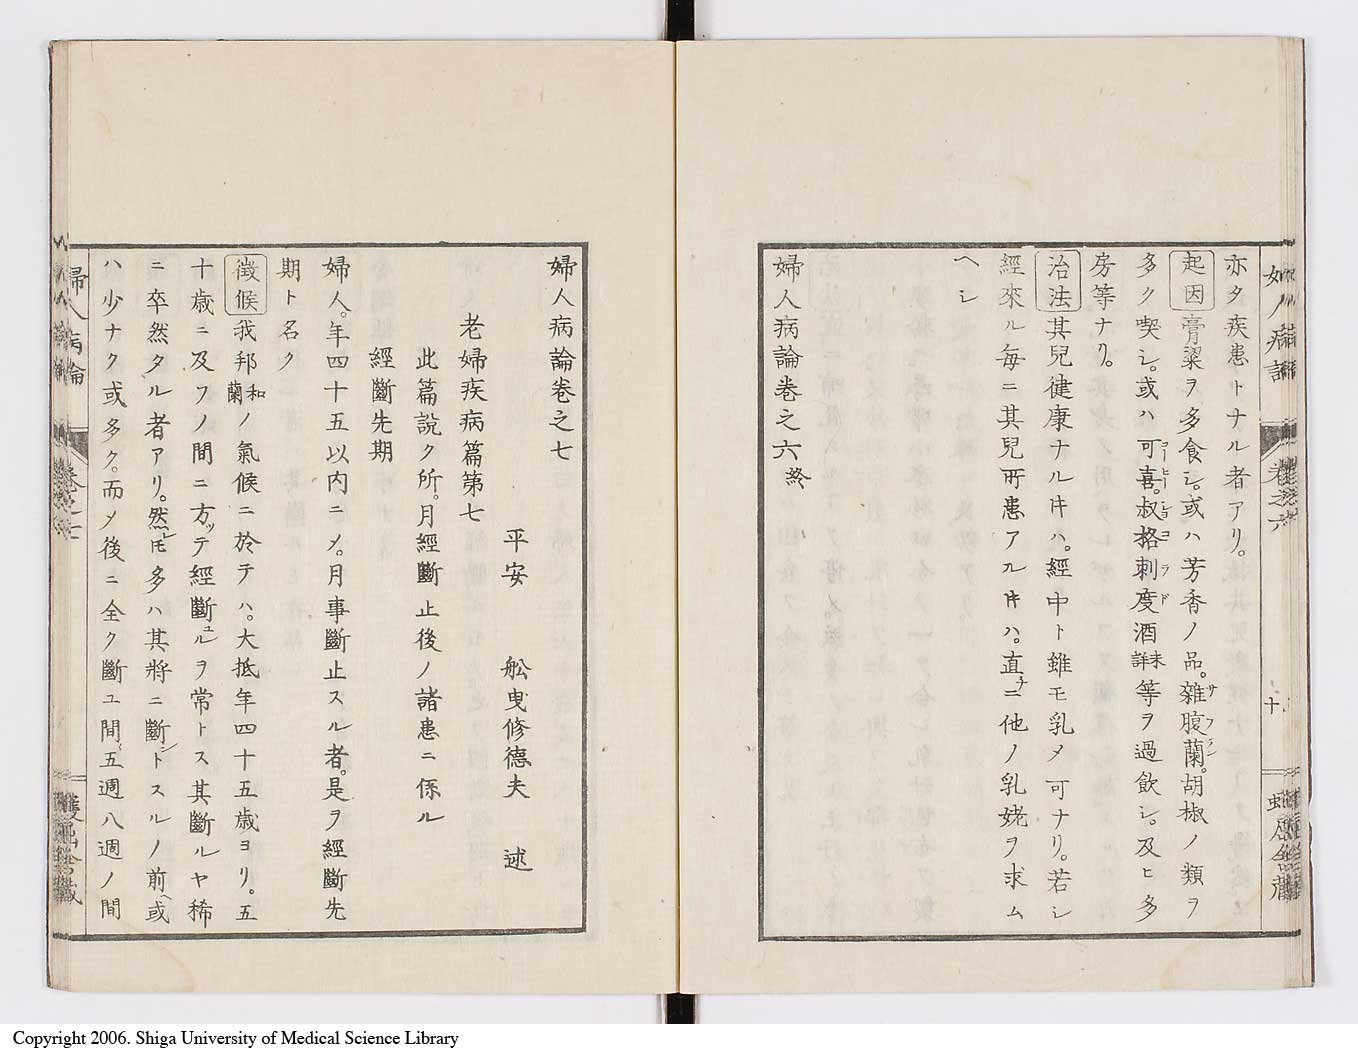 亦タ疾患トナル者アリ。
起因膏粱ヲ多食シ。或ハ芳香ノ品。雜腹蘭。胡椒ノ類ヲ
サフラン
多ク喫シ。或ハ可喜。叔格刺度酒未詳等ヲ過飲シ。及ヒ多
コーヒー シヨコラド
房等ナリ。
治法其兒健康ナル寸ハ。經中ト雖モ乳メ可ナリ。若シ
經來ル毎ニ其兒所患アル寸ハ。直ニ他ノ乳姥ヲ求ム
ヘシ
婦人病論卷之六終
婦人病論 卷之六 十
婦人病論卷之七
平安 舩曳修德夫 述
老婦疾病篇第七
此篇說ク所。月經斷止後ノ諸患ニ係ル
經斷先期
婦人。年四十五以内ニメ。月事斷止スル者。是ヲ經斷先
期ト名ク
徵候我邦和蘭ノ氣候ニ於テハ。大抵年四十五歳ヨリ。五
十歳ニ及フノ間ニ方ッテ經斷ユルヲ常トス其斷ルヤ稀
ニ卒然タル者アリ。然レ𪜈多ハ其將ニ斷ントスルノ前ヘ或
ハ少ナク或多ク。而メ後ニ全ク斷ユ間〻五週八週ノ間
婦人病論 卷之七
Copyright 2006. Shiga University of Medical Science Library